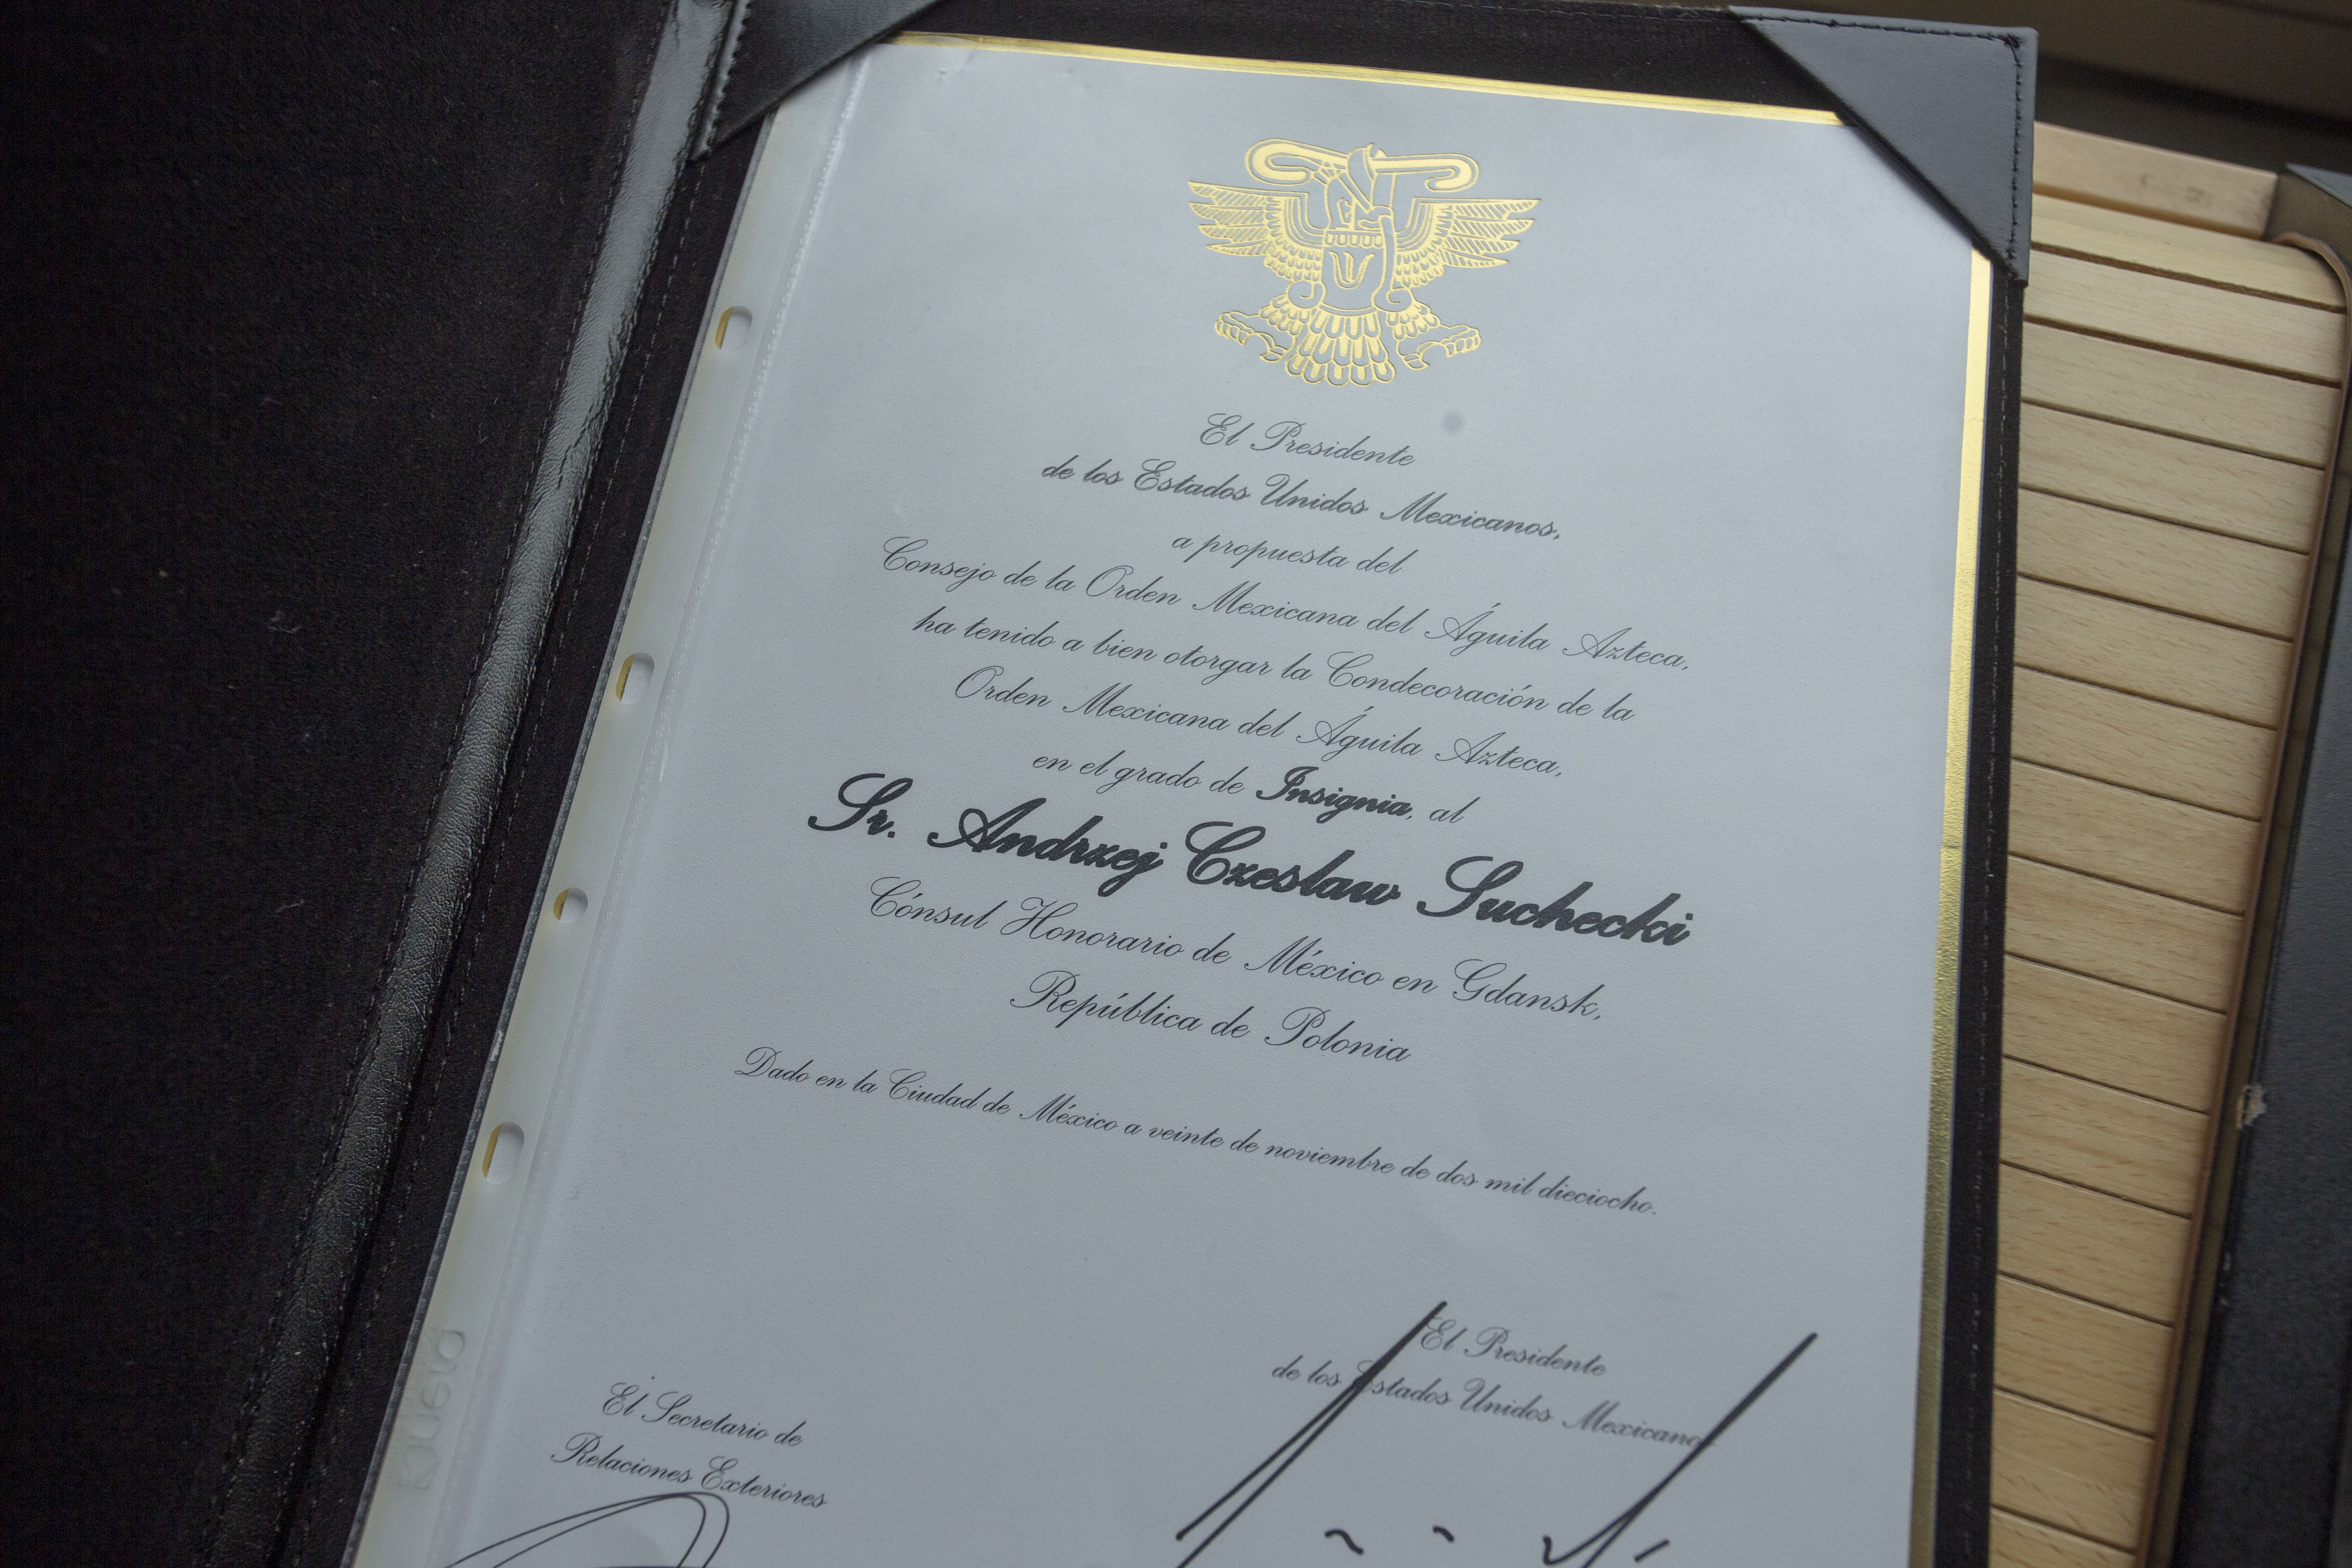 El Presidente
de los Estados Unidos Mexicanos,
a propuesta del
Consejo de la Orden Mexicana del Águila Azteca,
ha tenido a bien otorgar la Condecoración de la
Orden Mexicana del Águila Azteca,
en el grado de Insignia, al
Sr. Andrzej Czeslaw Suchecki
Cónsul Honorario de México en Gdansk,
República de Polonia
Dado en la Ciudad de México a veinte de noviembre de dos mil dieciocho.
El Secretario de
Relaciones Exteriores
El Presidente
de los Estados Unidos Mexicanos